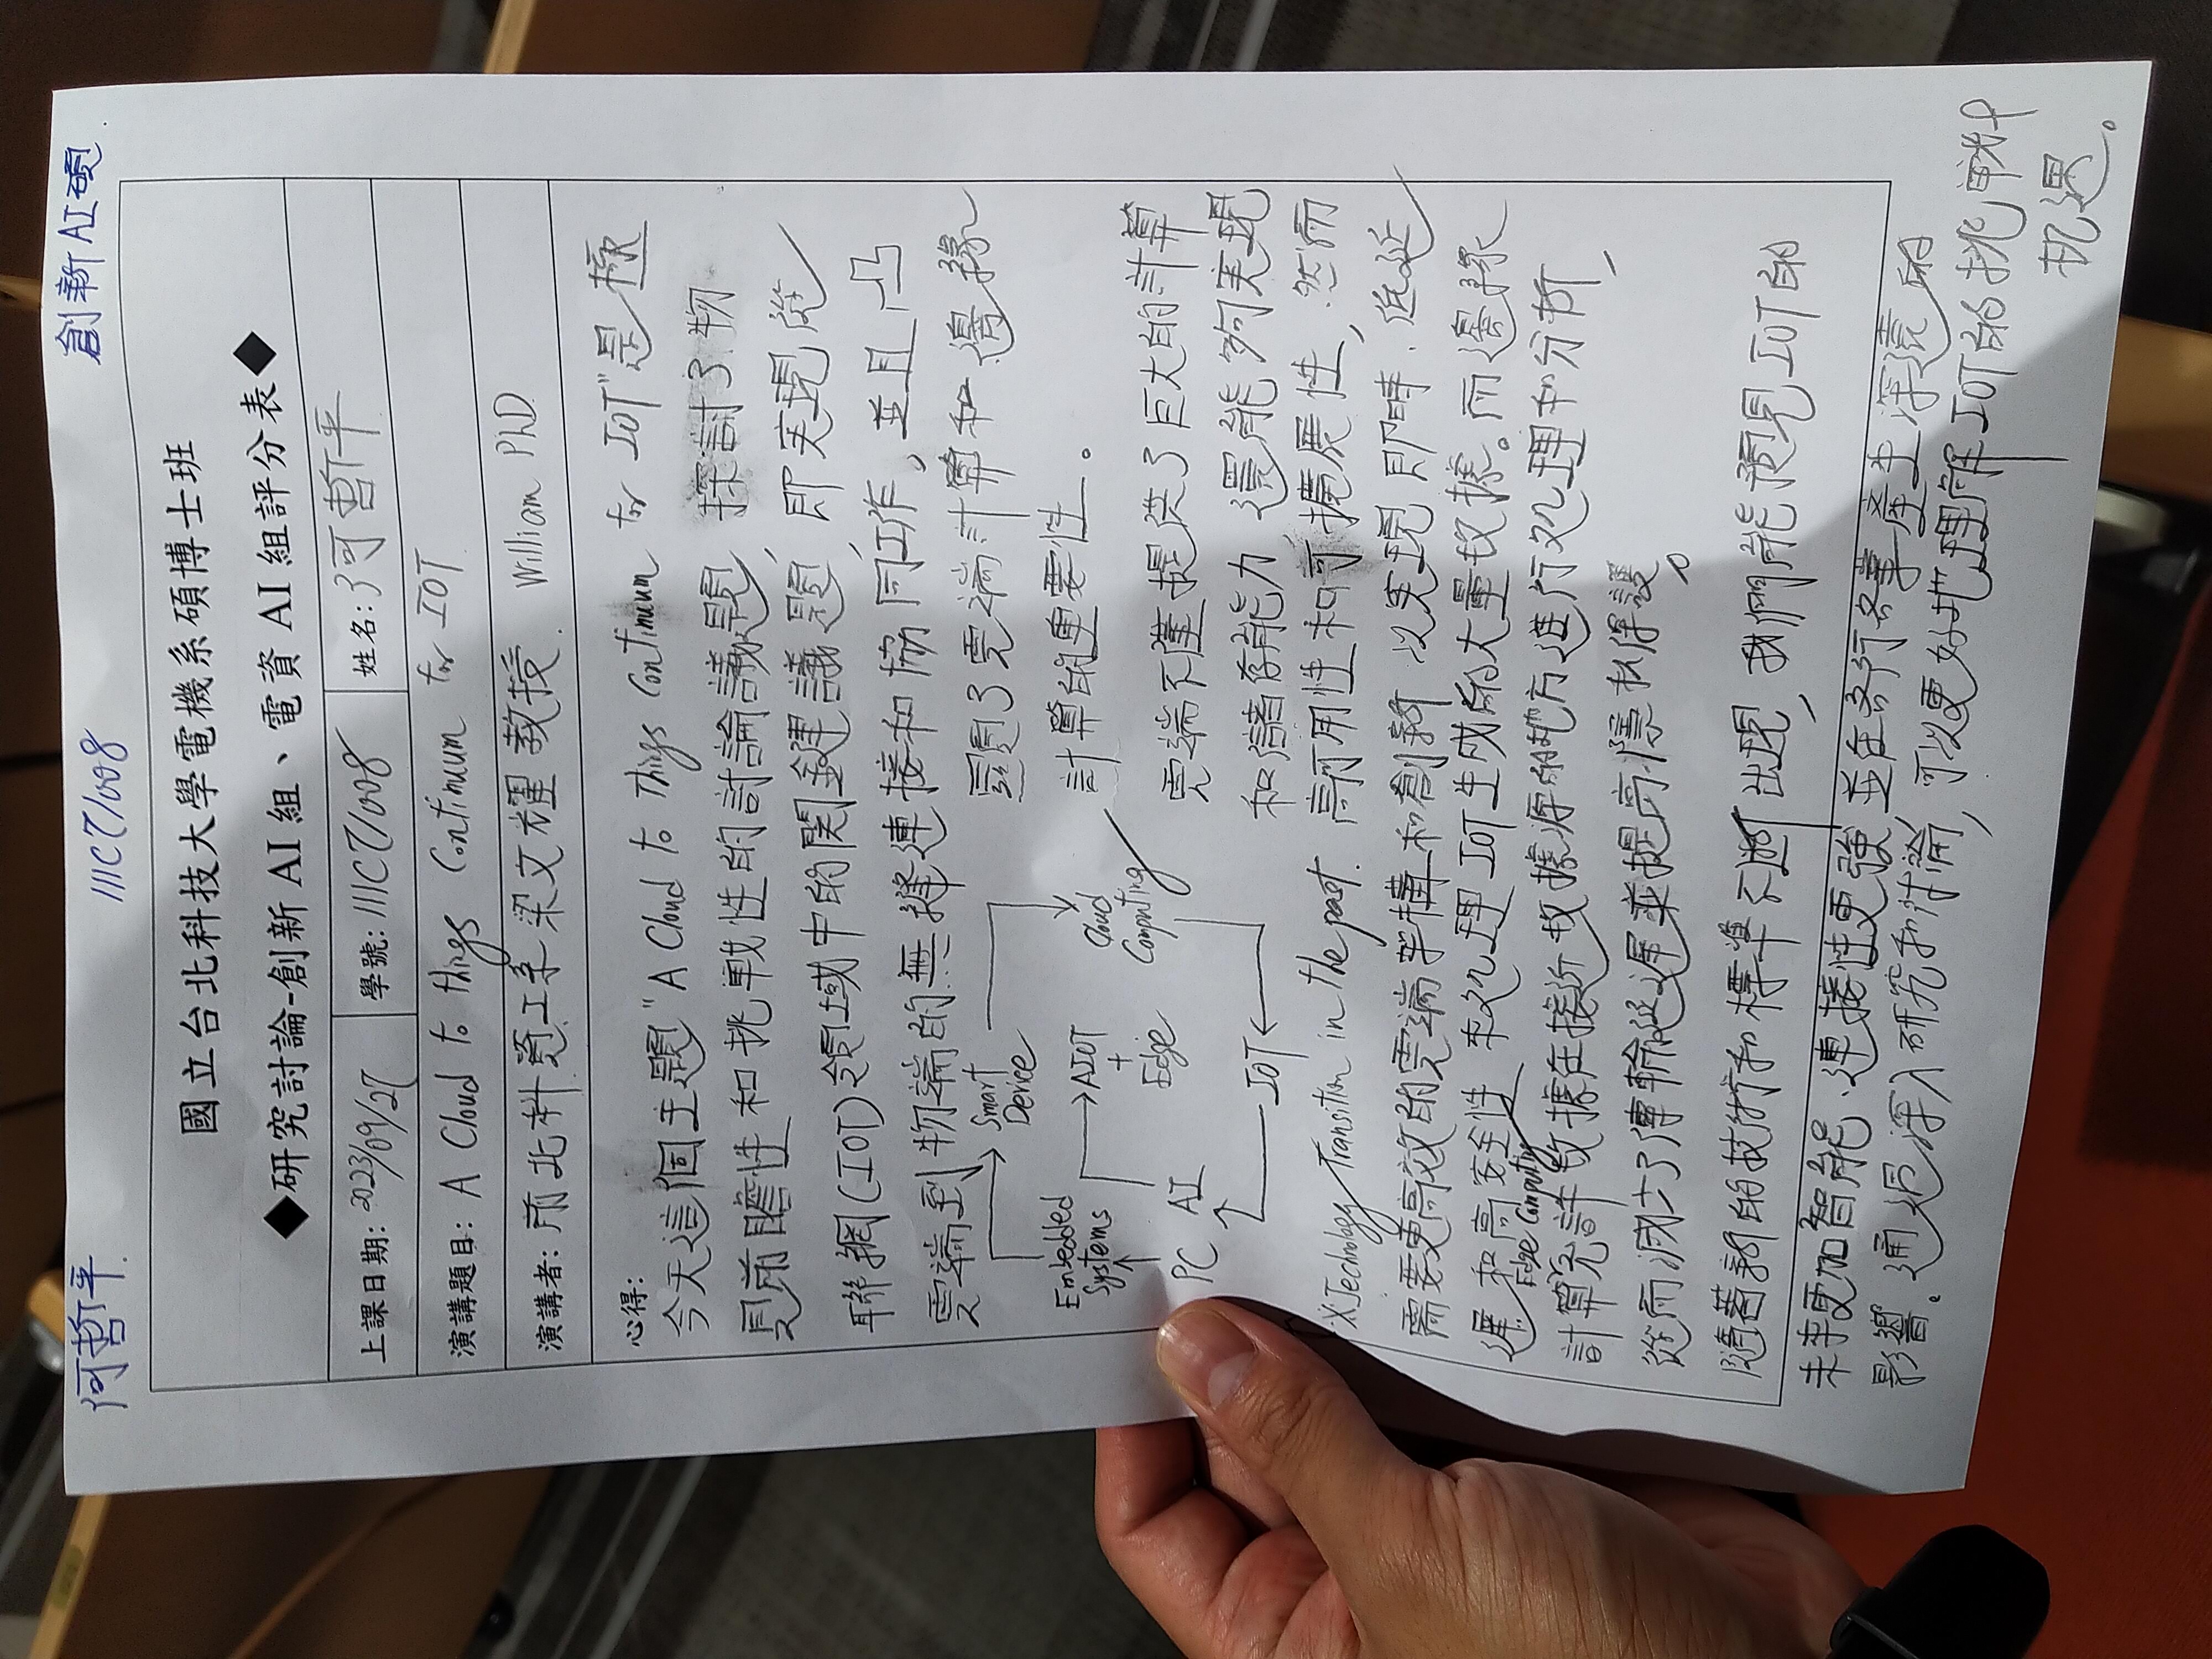 何哲平 111C71008 創新AI碩
國立台北科技大學電機系碩博士班
◆研究討論-創新 AI 組、電資 AI 組評分表◆
上課日期: 2023/09/27 學號: 111C71008 姓名: 何哲平
演講題目: A Cloud to things Continuum for IOT
演講者: 前北科資工系 梁文耀 教授. William PhD
心得:
今天這個主題 "A Cloud to Things Continuum for IOT" 是極
具前瞻性和挑戰性的討論議題, 探討了物
聯網(IOT)領域中的関鍵議題, 即実現從
雲端到物端的無縫連接和協同工作, 並且凸
顕了雲端計算和邊緣
計算的重要性。
Smart
Device
Embedded
Systems
AIOT
+
Edge
Cloud
Computing
PC AI
IOT
※Technology Transition in the past.
雲端不僅提供了巨大的計算
和儲存能力, 還能夠実現
高可用性和可擴展性, 然而
需要更高效的雲端架構和創新 以実現 即時、低延
遲 和高安全性 來処理 IOT生成的大量数據。而邊緣
Edge Computing
計算允許数據在接近数據源的地方進行処理和分析,
從而減少了傳輸延遲並提高隱私保護。
隨著新的技術和標準不断出現, 我們能預見IOT的
未來更加智能、連接性更強 並在各行各業產生深遠的
影響。通過深入研究和討論, 可以更好地理解IOT的挑戰和
机遇。